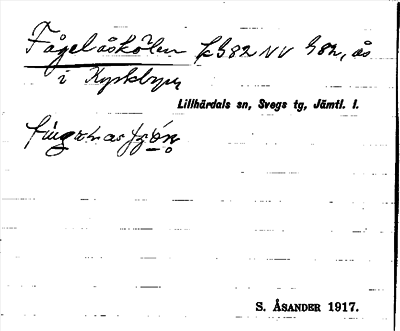 Fågelåskölen k 982 NV 982, ås
i Kyrkbyn
Lillhärdals sn, Svegs tg, Jämtl. l.
S. ÅSANDER 1917.